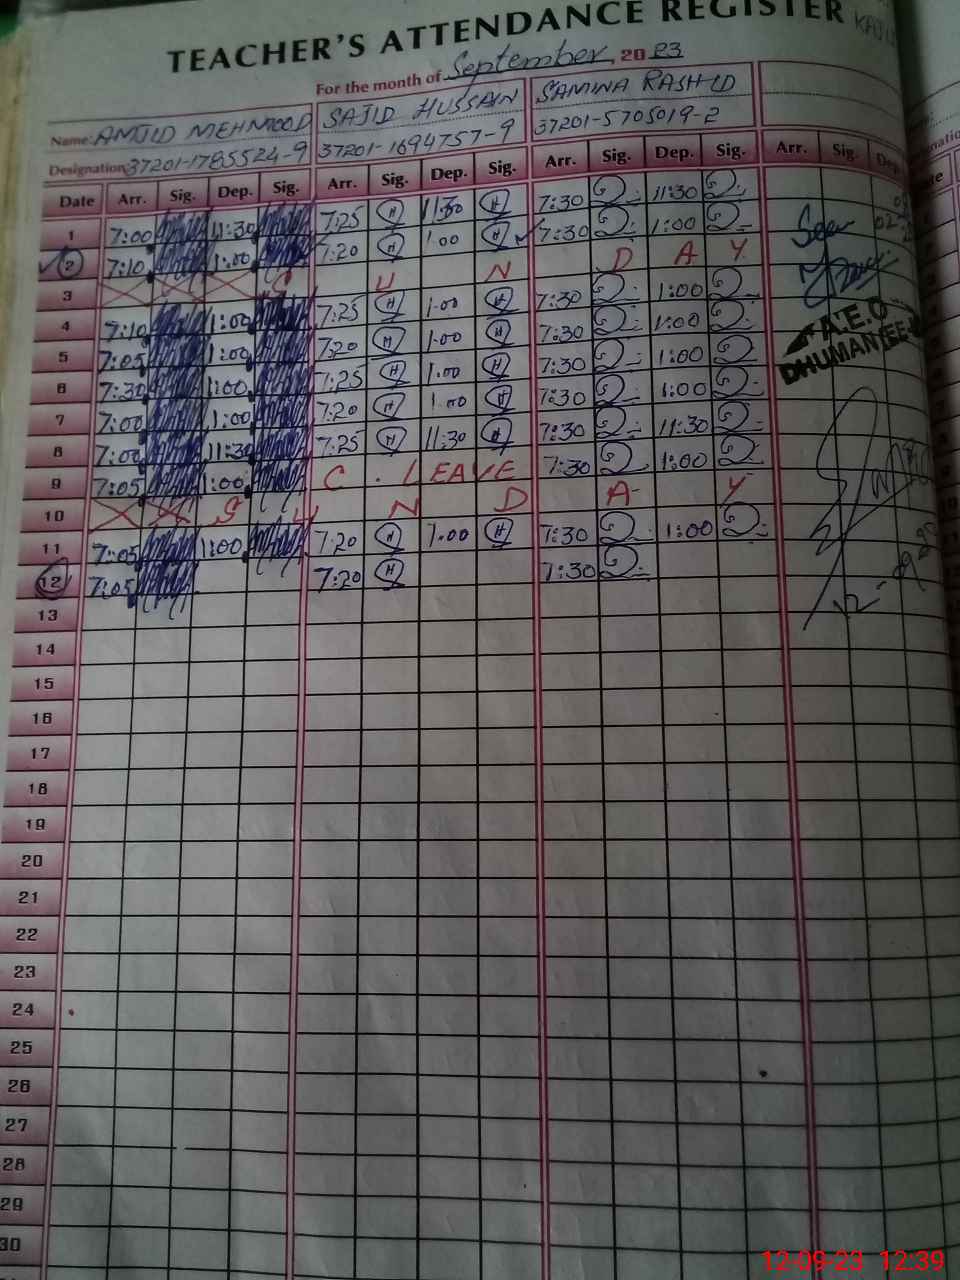 TEACHER'S ATTENDANCE REGISTER
For the month of September, 20 23
Name: AMJID MEHMOOD SAJID HUSSAIN SAMINA RASHID
Designation 37201-1785524-9 37201-1694757-9 37201-5705019-2
Date Arr. Sig. Dep. Sig. Arr. Sig. Dep. Sig. Arr. Sig. Dep. Sig. Arr. Sig.
1 7:00 11:30 7:25 H 11:30 H 7:30 11:30
2 7:10 1:00 7:20 H 1:00 H 7:30 1:00 Seen
3 S U N D A Y
4 7:10 1:00 7:25 H 1:00 H 7:30 1:00
5 7:05 1:00 7:20 H 1:00 H 7:30 1:00 A.E.O
6 7:30 1:00 7:25 H 1:00 H 7:30 1:00
7 7:00 1:00 7:20 H 1:00 H 7:30 1:00
8 7:00 11:30 7:25 H 11:30 H 7:30 11:30
9 7:05 1:00 C. LEAVE 7:30 1:00
10 S U N D A Y
11 7:05 1:00 7:20 H 1:00 H 7:30 1:00
12 7:05 7:20 H 7:30
13
14
15
16
17
18
19
20
21
22
23
24
25
26
27
28
29
30
12-09-23 12:39